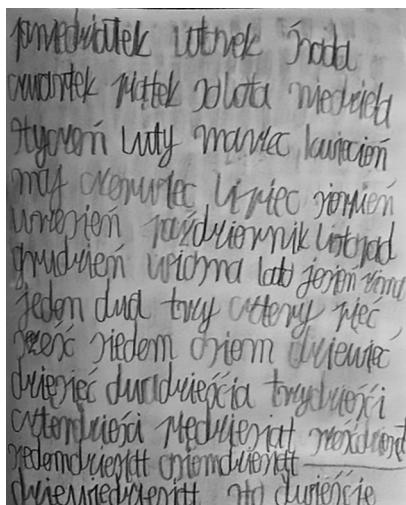 poniedziałek wtorek środa
czwartek piątek sobota niedziela
styczeń luty marzec kwiecień
maj czerwiec lipiec sierpień
wrzesień październik listopad
grudzień wiosna lato jesień zima
jeden dwa trzy cztery pięć
sześć siedem osiem dziewięć
dziesięć dwadzieścia trzydzieści
czterdzieści pięćdziesiąt sześćdziesiąt
siedemdziesiąt osiemdziesiąt
dziewięćdziesiąt sto dwieście